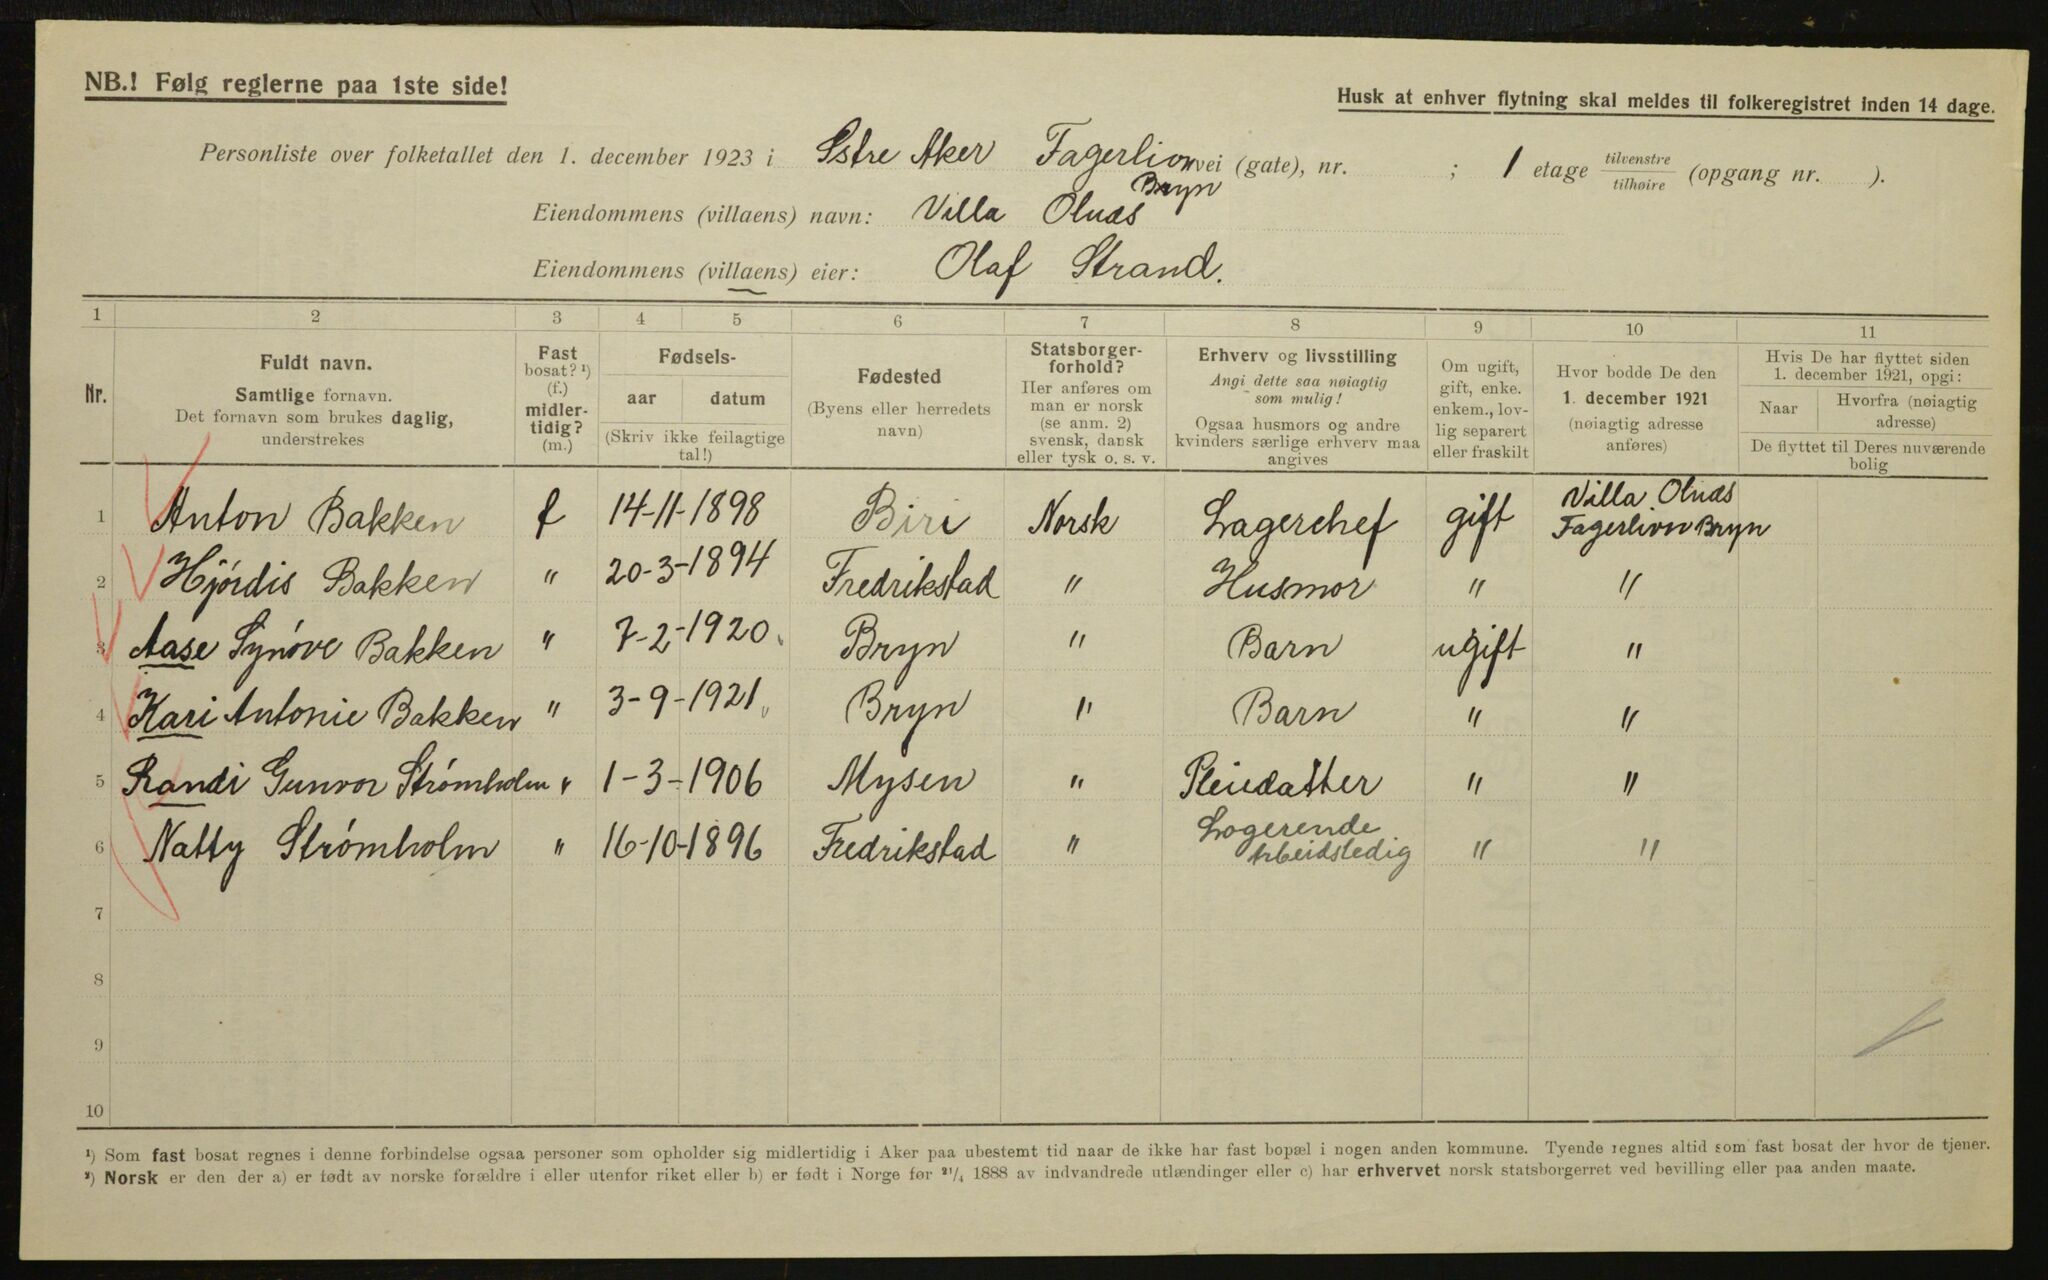 NB.! Følg reglerne paa 1ste side!
Husk at enhver flytning skal meldes til folkeregistret inden 14 dage.
Personliste over folketallet den 1. december 1923 i Østre Aker Fagerlivn vei (gate), nr. ; 1 etage tilvenstre tilhøire (opgang nr. ).
Bryn
Eiendommens (villaens) navn: Villa Olnæs
Eiendommens (villaens) eier: Olaf Strand.
1 2 3 4 5 6 7 8 9 10 11
Nr.
Fuldt navn.
Samtlige fornavn.
Det fornavn som brukes daglig,
understrekes
Fast
bosat? ¹)
(f.)
midler-
tidig?
(m.)
Fødsels-
aar datum
(Skriv ikke feilagtige
tal!)
Fødested
(Byens eller herredets
navn)
Statsborger-
forhold?
Her anføres om
man er norsk
(se anm. 2)
svensk, dansk
eller tysk o. s. v.
Erhverv og livsstilling
Angi dette saa nøiagtig
som mulig!
Ogsaa husmors og andre
kvinders særlige erhverv maa
angives
Om ugift,
gift, enke.
enkem., lov-
lig separert
eller fraskilt
Hvor bodde De den
1. december 1921
(nøiagtig adresse
anføres)
Hvis De har flyttet siden
1. december 1921, opgi:
Naar
Hvorfra (nøiagtig
adresse)
De flyttet til Deres nuværende
bolig
1 Anton Bakken f 14-11-1898 Biri Norsk Lagerchef gift Villa Olnæs
Fagerlivn Bryn
2 Hjördis Bakken " 20-3-1894 Fredrikstad " Husmor " "
3 Aase Synöve Bakken " 7-2-1920 Bryn " Barn ugift "
4 Kari Antonie Bakken " 3-9-1921 Bryn " Barn " "
5 Randi Gunvor Strømholm " 1-3-1906 Mysen " Pleiedatter " "
6 Natty Strømholm " 16-10-1896 Fredrikstad " Logerende
Arbeidsledig " "
7
8
9
10
¹) Som fast bosat regnes i denne forbindelse ogsaa personer som opholder sig midlertidig i Aker paa ubestemt tid naar de ikke har fast bopæl i nogen anden kommune. Tyende regnes altid som fast bosat der hvor de tjener.
²) Norsk er den der a) er født av norske forældre i eller utenfor riket eller b) er født i Norge før ²¹/₄ 1888 av indvandrede utlændinger eller c) har erhvervet norsk statsborgerret ved bevilling eller paa anden maate.